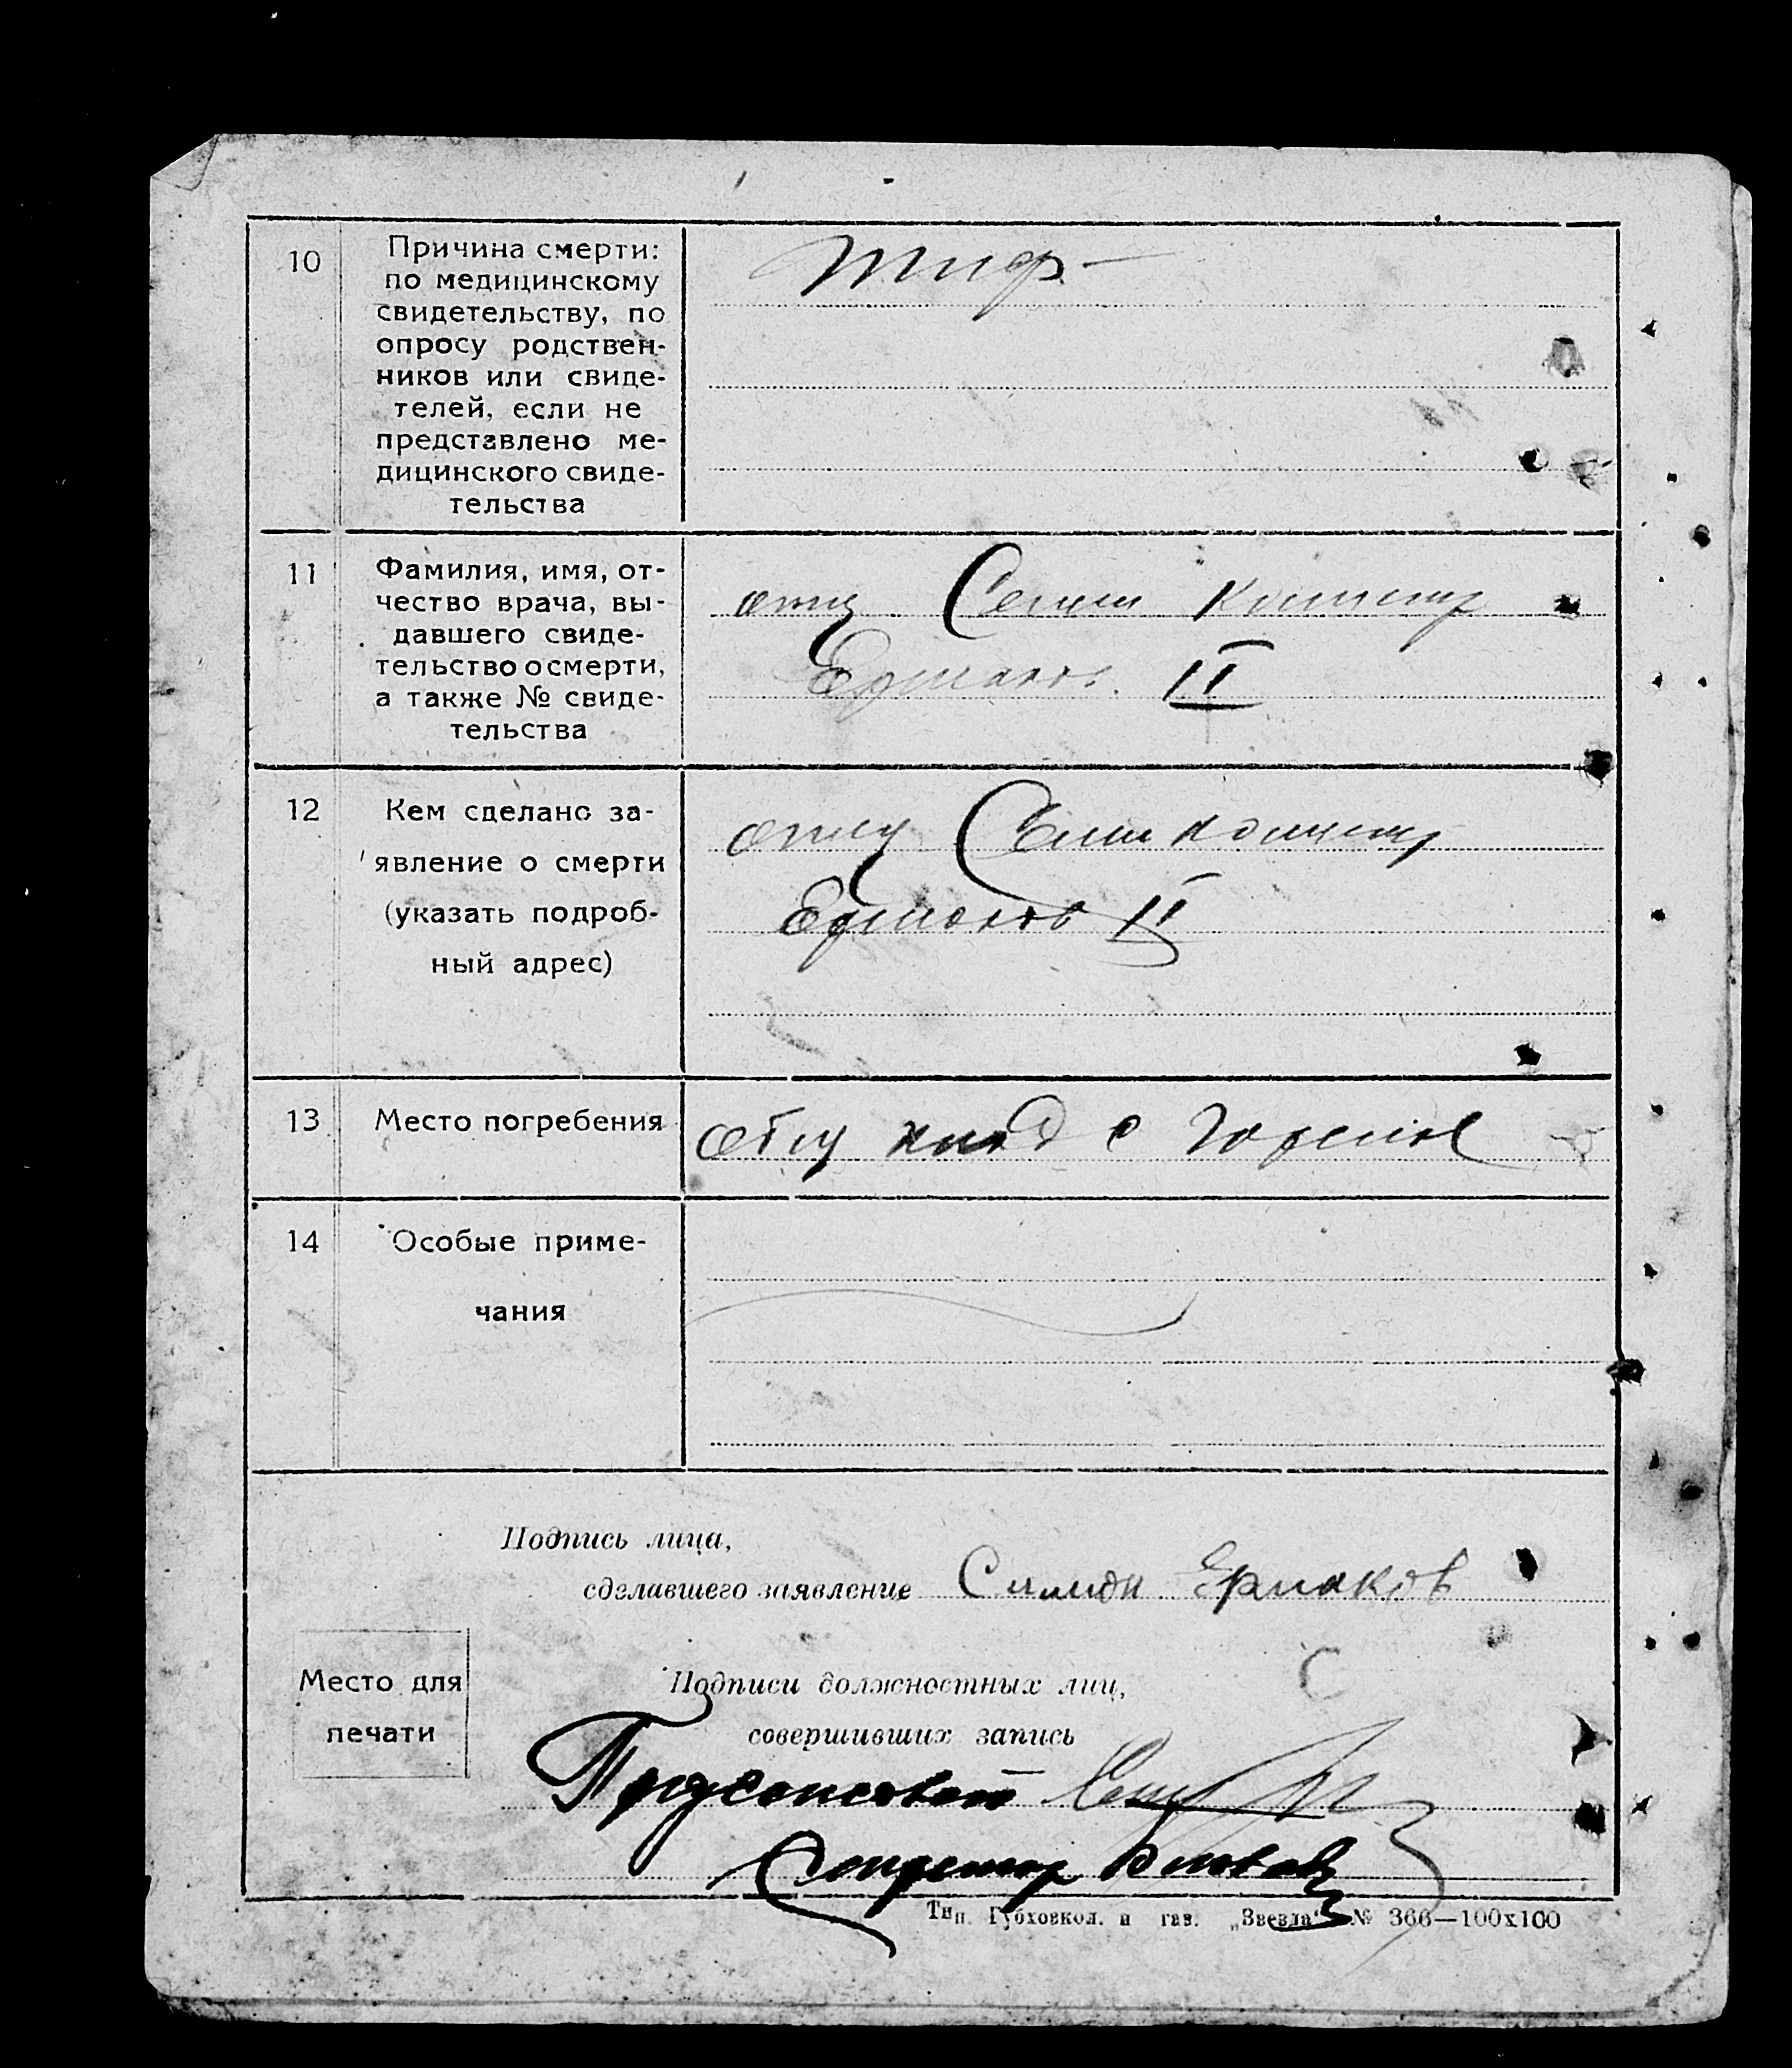 10
Причина смерти:
по медицинскому
свидетельству, по
опросу родствен-
ников или свиде-
телей, если не
представлено ме-
дицинского свиде-
тельства
Тиф
11
Фамилия, имя, от-
чество врача, вы-
давшего свиде-
тельство о смерти,
а также № свиде-
тельства
отец
Ермаков II
12
Кем сделано за-
явление о смерти
(указать подроб-
ный адрес)
отец
Ермаков II
13
Место погребения
14
Особые приме-
чания
Подпись лица,
сделавшего заявление Симион Ермаков
Место для
печати
Подписи должностных лиц,
совершивших запись
Тип. Губховкол. и газ. „Звезда“ № 366—100х100